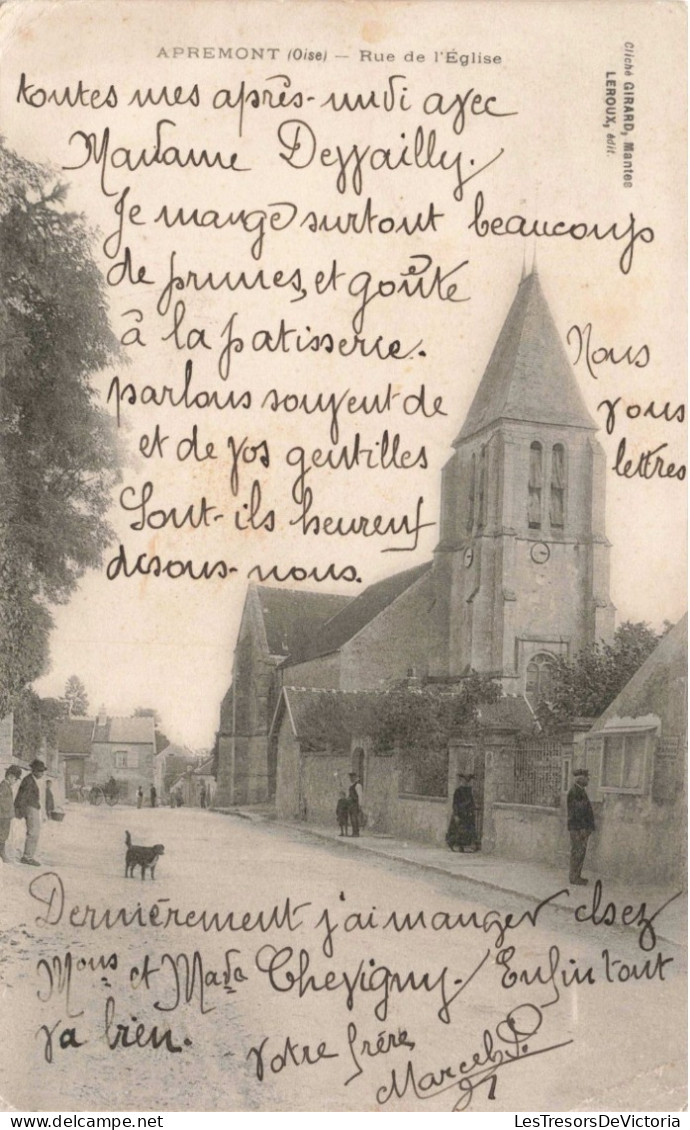 APREMONT (Oise) — Rue de l'Église
Cliché GIRARD, Mantes
LEROUX, édit.
toutes mes après-midi avec
Madame Deyvailly.
Je mange surtout beaucoup
de prunes, et goûte
à la patisserie.
Nous
parlons souvent de
vous
et de vos gentilles
lettres
Sont-ils heureux
desous-nous.
Dernièrement j'ai manger chez
Mons et Mada Chevigny. Enfin tout
va bien.
votre frère
Marcel P.
LesTresorsDeVictoria